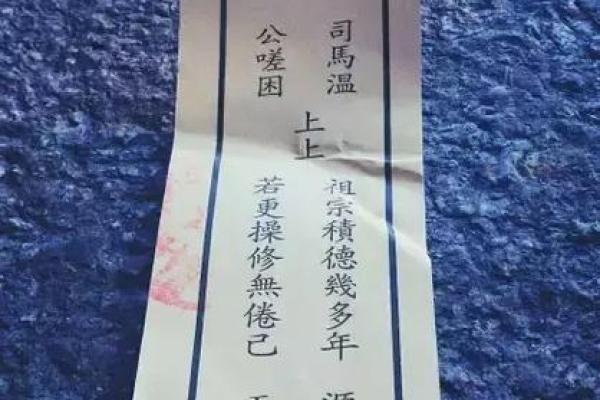 司馬溫
公嗟困
上上
祖宗積德幾多年
若更操修無倦己